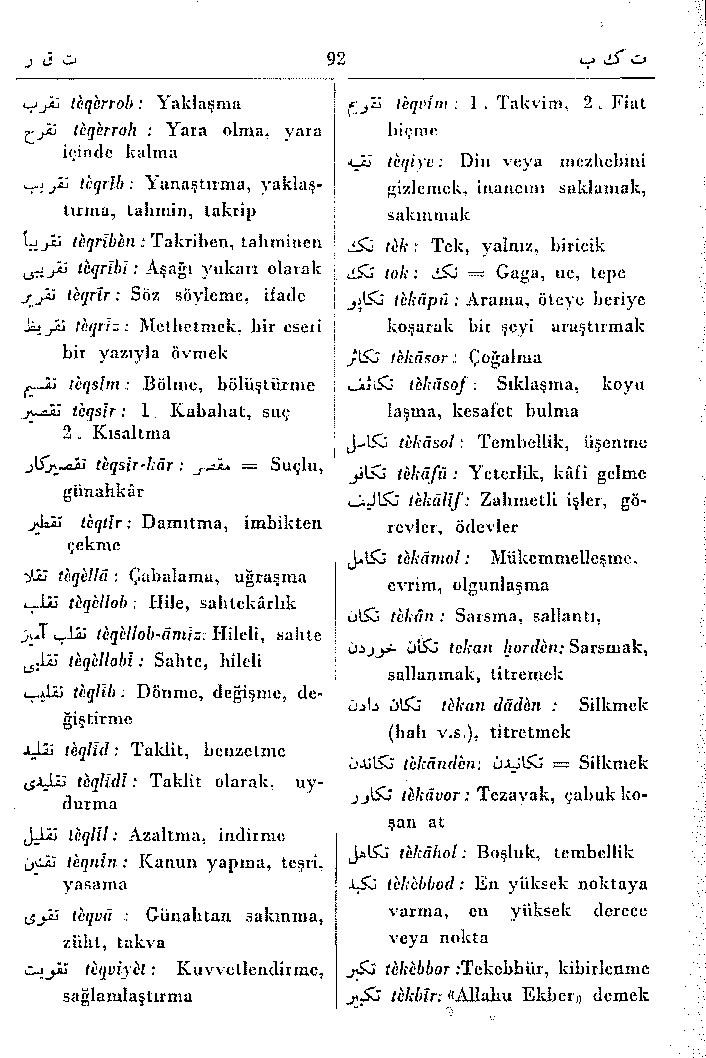 ت ق ر
92
ت ک ب
تقرب tèqèrrob: Yaklaşma
تقرح tèqèrroh : Yara olma, yara
içinde kalma
تقریب tèqrîb: Yanaştırma, yaklaş-
tırma, tahmin, takrip
تقریباً tèqrîbèn: Takriben, tahminen
تقریبی tèqrîbî: Aşağı yukarı olarak
تقریر tèqrîr: Söz söyleme, ifade
تقریظ tèqrîz: Methetmek, bir eseri
bir yazıyla övmek
تقسیم tèqsîm: Bölme, bölüştürme
تقصیر tèqsîr: 1. Kabahat, suç
2. Kısaltma
تقصیرکار tèqsîr-kâr: مقصر = Suçlu,
günahkâr
تقطیر tèqtîr: Damıtma, imbikten
çekme
تقلا tèqèllâ: Çabalama, uğraşma
تقلب tèqèllob: Hile, sahtekârlık
تقلب آمیز tèqèllob-âmiz: Hileli, sahte
تقلبی tèqèllobî: Sahte, hileli
تقلیب tèqlîb: Dönme, değişme, de-
ğiştirme
تقلید tèqlîd: Taklit, benzetme
تقلیدی tèqlîdî: Taklit olarak, uy-
durma
تقلیل tèqlîl: Azaltma, indirme
تقنین tèqnîn: Kanun yapma, teşri,
yasama
تقوی tèqvâ : Günahtan sakınma,
züht, takva
تقویت tèqviyèt: Kuvvetlendirme,
sağlamlaştırma
تقویم tèqvîm: 1. Takvim, 2. Fiat
biçme
تقیه tèqiye: Din veya mezhebini
gizlemek, inancını saklamak,
sakınmak
تک tèk: Tek, yalnız, biricik
تک tok: تک = Gaga, uc, tepe
تکاپو tèkâpû: Arama, öteye beriye
koşarak bir şeyi araştırmak
تکاثر tèkâsor: Çoğalma
تکاثف tèkâsof: Sıklaşma, koyu
laşma, kesafet bulma
تکاسل tèkâsol: Tembellik, üşenme
تکافو tèkâfü: Yeterlik, kâfi gelme
تکالیف tèkâlîf: Zahmetli işler, gö-
revler, ödevler
تکامل tèkâmol: Mükemmelleşme,
evrim, olgunlaşma
تکان tèkân: Sarsma, sallantı,
تکان خوردن tekan hordèn: Sarsmak,
sallanmak, titremek
تکان دادن tèkan dâdèn : Silkmek
(halı v.s.), titretmek
تکاندن tèkândèn: تکانیدن = Silkmek
تکاور tèkâvor: Tezayak, çabuk ko-
şan at
تکاهل tèkâhol: Boşluk, tembellik
تکبد tèkèbbod: En yüksek noktaya
varma, en yüksek derece
veya nokta
تکبر tèkèbbor :Tekebbür, kibirlenme
تکبیر tèkbîr: «Allahu Ekber» demek